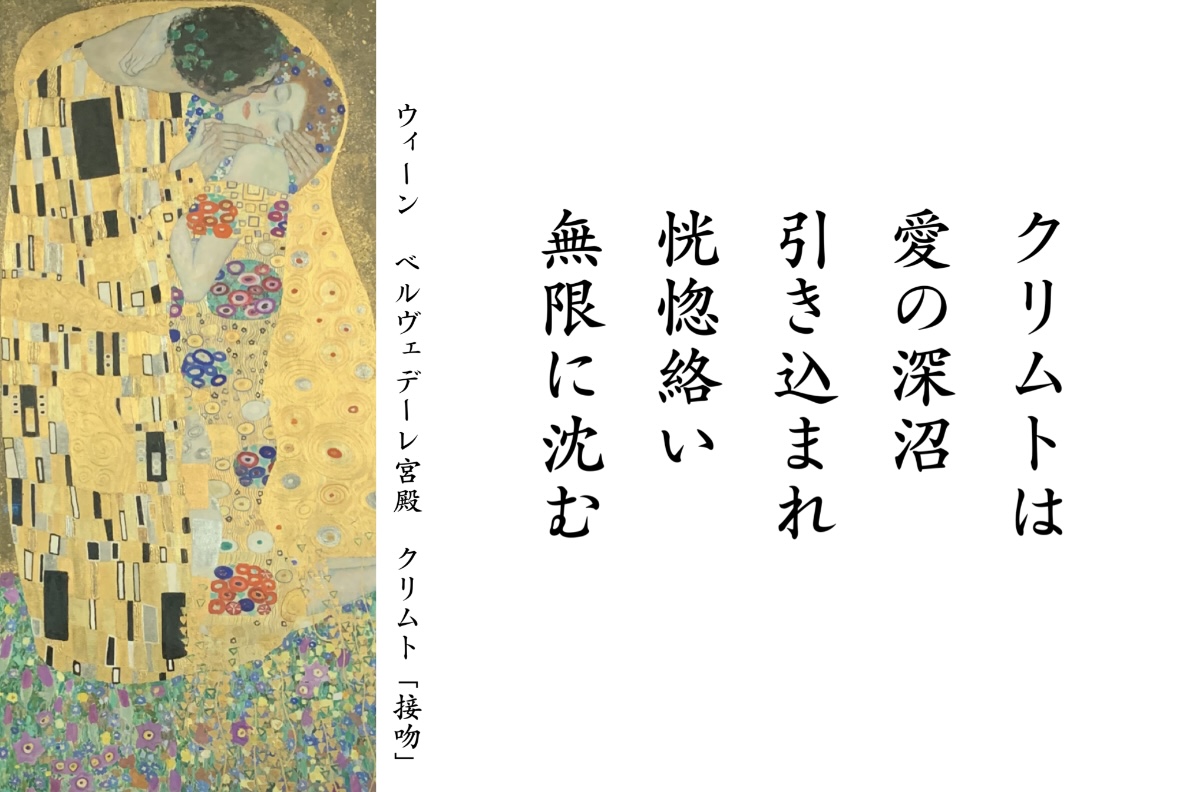 クリムトは
愛の深沼
引き込まれ
恍惚絡い
無限に沈む
ウィーン　ベルヴェデーレ宮殿　クリムト「接吻」